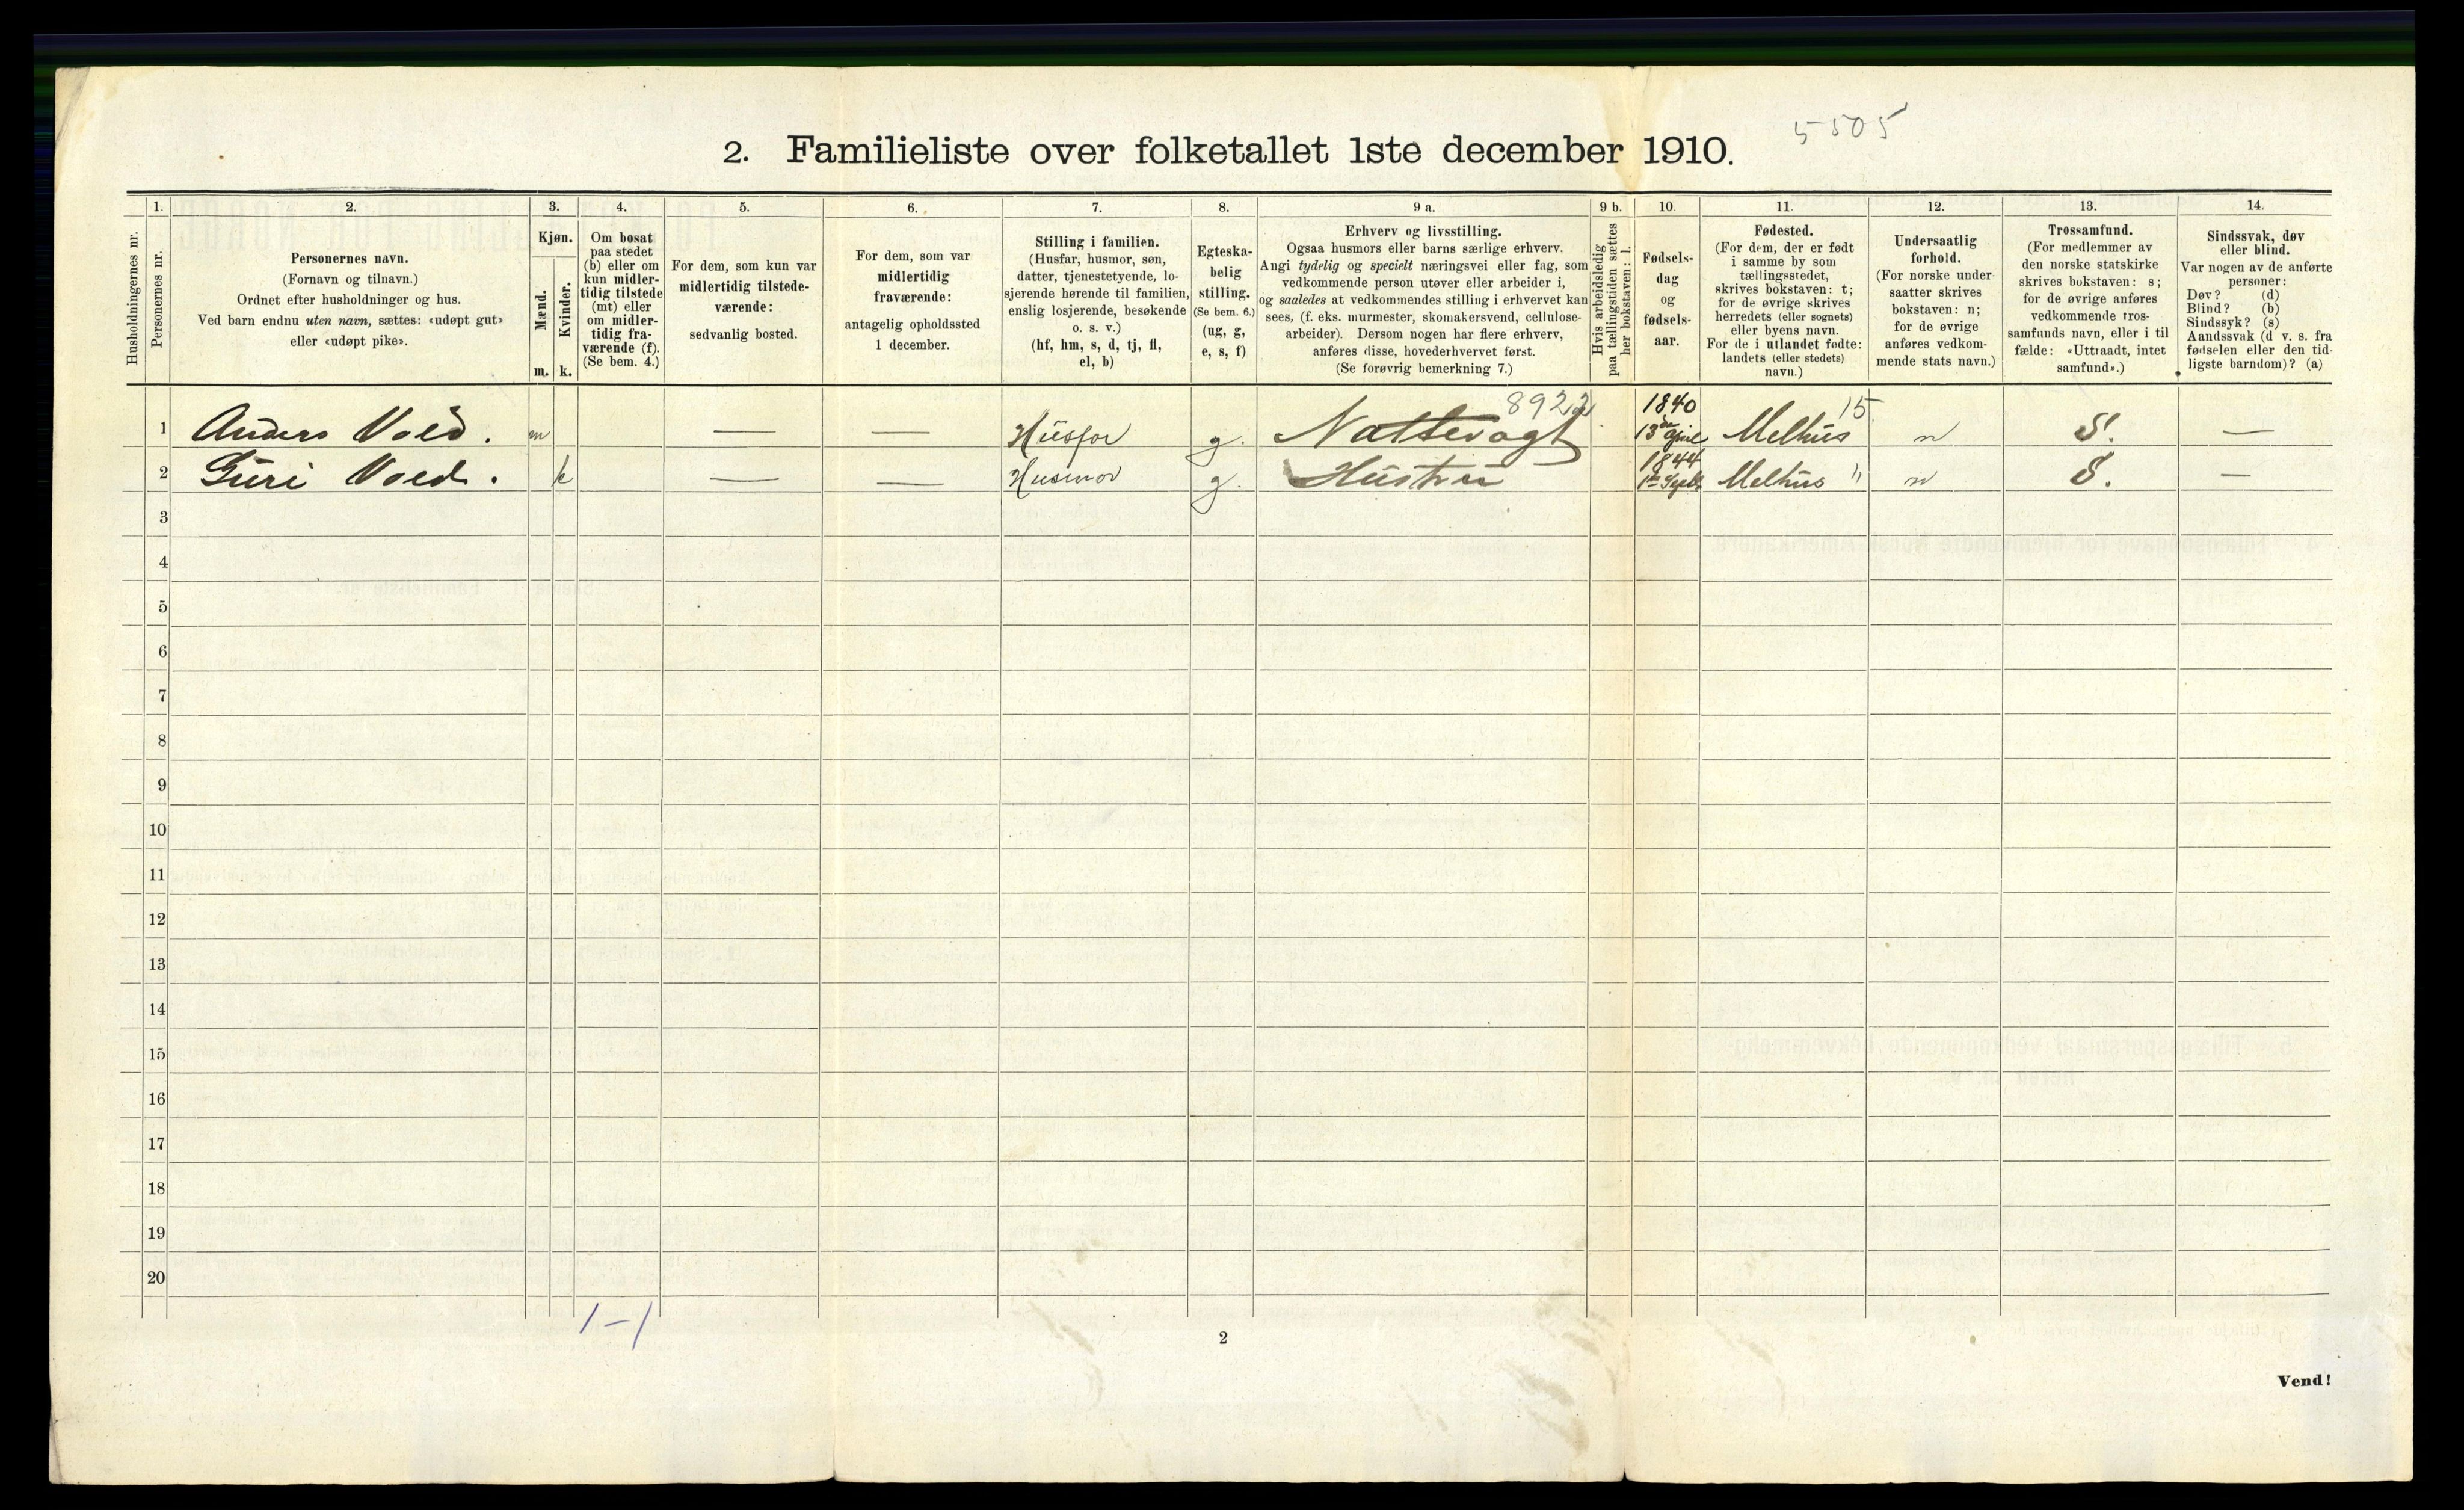 5505
2. Familieliste over folketallet 1ste december 1910.
1. 2. 3. 4. 5. 6. 7. 8. 9 a. 9 b. 10. 11. 12. 13. 14.
Husholdningernes nr.
Personernes nr.
Personernes navn.
(Fornavn og tilnavn.)
Ordnet efter husholdninger og hus.
Ved barn endnu uten navn, sættes: «udøpt gut»
eller «udøpt pike».
Kjøn.
Mænd.
Kvinder.
m. k.
Om bosat
paa stedet
(b) eller om
kun midler-
tidig tilstede
(mt) eller
om midler-
tidig fra-
værende (f).
(Se bem. 4.)
For dem, som kun var
midlertidig tilstede-
værende:
sedvanlig bosted.
For dem, som var
midlertidig
fraværende:
antagelig opholdssted
1 december.
Stilling i familien.
(Husfar, husmor, søn,
datter, tjenestetyende, lo-
sjerende hørende til familien,
enslig losjerende, besøkende
o. s. v.)
(hf, hm, s, d, tj, fl,
el, b)
Egteska-
belig
stilling.
(Se bem. 6.)
(ug, g,
e, s, f)
Erhverv og livsstilling.
Ogsaa husmors eller barns særlige erhverv.
Angi tydelig og specielt næringsvei eller fag, som
vedkommende person utøver eller arbeider i,
og saaledes at vedkommendes stilling i erhvervet kan
sees, (f. eks. murmester, skomakersvend, cellulose-
arbeider). Dersom nogen har flere erhverv,
anføres disse, hovederhvervet først.
(Se forøvrig bemerkning 7.)
Hvis arbeidsledig
paa tællingstiden sættes
her bokstaven: l.
Fødsels-
dag
og
fødsels-
aar.
Fødested.
(For dem, der er født
i samme by som
tællingsstedet,
skrives bokstaven: t;
for de øvrige skrives
herredets (eller sognets)
eller byens navn.
For de i utlandet fødte:
landets (eller stedets)
navn.)
Undersaatlig
forhold.
(For norske under-
saatter skrives
bokstaven: n;
for de øvrige
anføres vedkom-
mende stats navn.)
Trossamfund.
(For medlemmer av
den norske statskirke
skrives bokstaven: s;
for de øvrige anføres
vedkommende tros-
samfunds navn, eller i til
fælde: «Uttraadt, intet
samfund».)
Sindssvak, døv
eller blind.
Var nogen av de anførte
personer:
Døv? (d)
Blind? (b)
Sindssyk? (s)
Aandssvak (d v. s. fra
fødselen eller den tid-
ligste barndom)? (a)
8922 1840 15
1 Anders Vold. m — — Husfar g. Nattevagt 13de Melhus n S. —
1844
2 Guri Vold. k — — Husmor g. Hustru Melhus " n S. —
3
4
5
6
7
8
9
10
11
12
13
14
15
16
17
18
19
20
1 – 1
2
Vend!